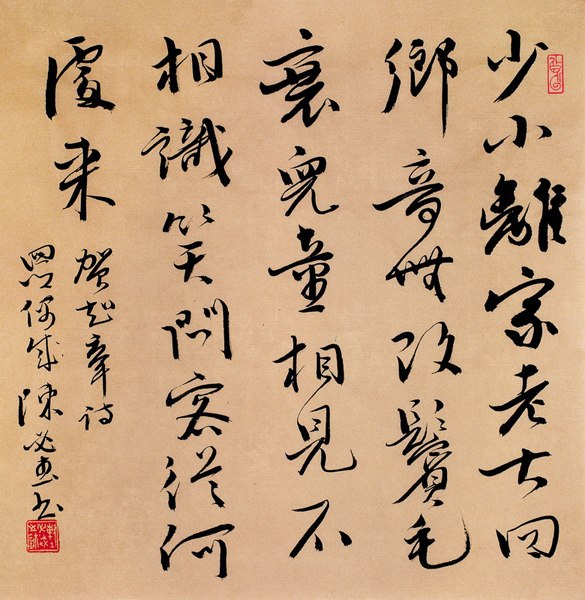 少小離家老大回
鄉音無改鬢毛
衰兒童相見不
相識笑問客從何
處來
賀知章詩
偶成陳必书